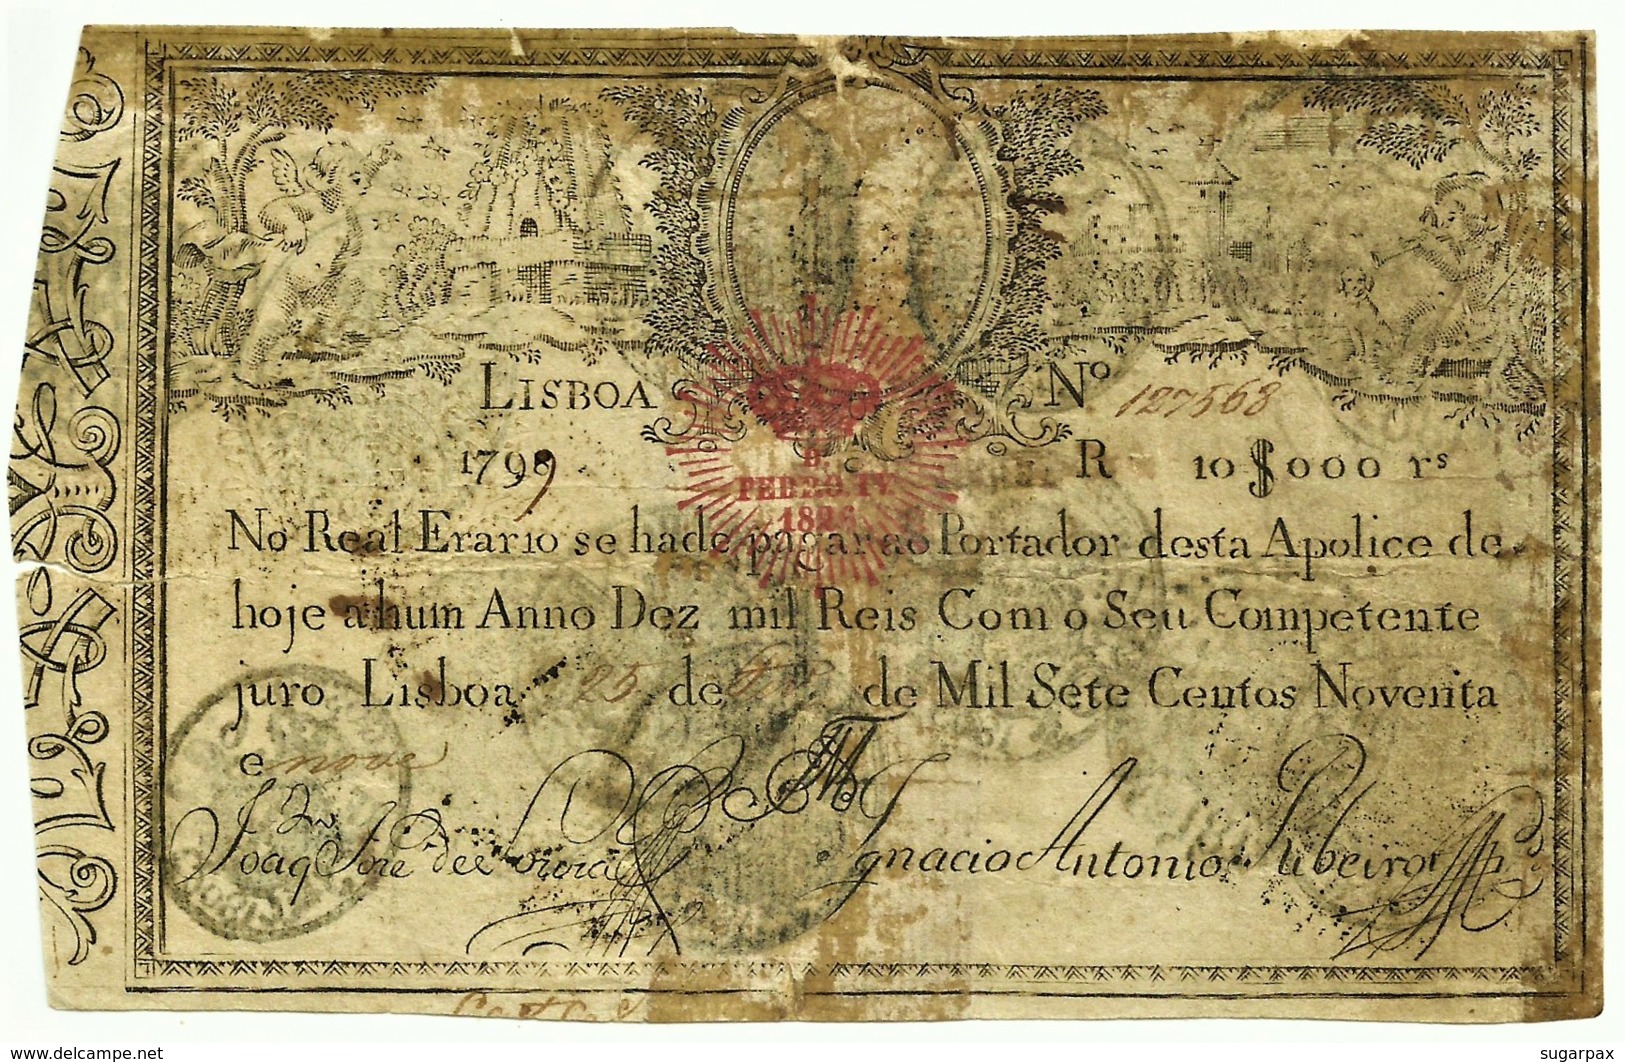 LISBOA
Nº 127568
1799
R 10$000 rs
D.
PEDRO IV.
1826
No Real Erario se hade pagar ao Portador desta Apolice de
hoje a hum Anno Dez mil Reis Com o Seu Competente
juro Lisboa 25 de de Mil Sete Centos Noventa
e nove
Joaq Jose
Ignacio Antonio Ribeiro
delcampe.net
sugarpax